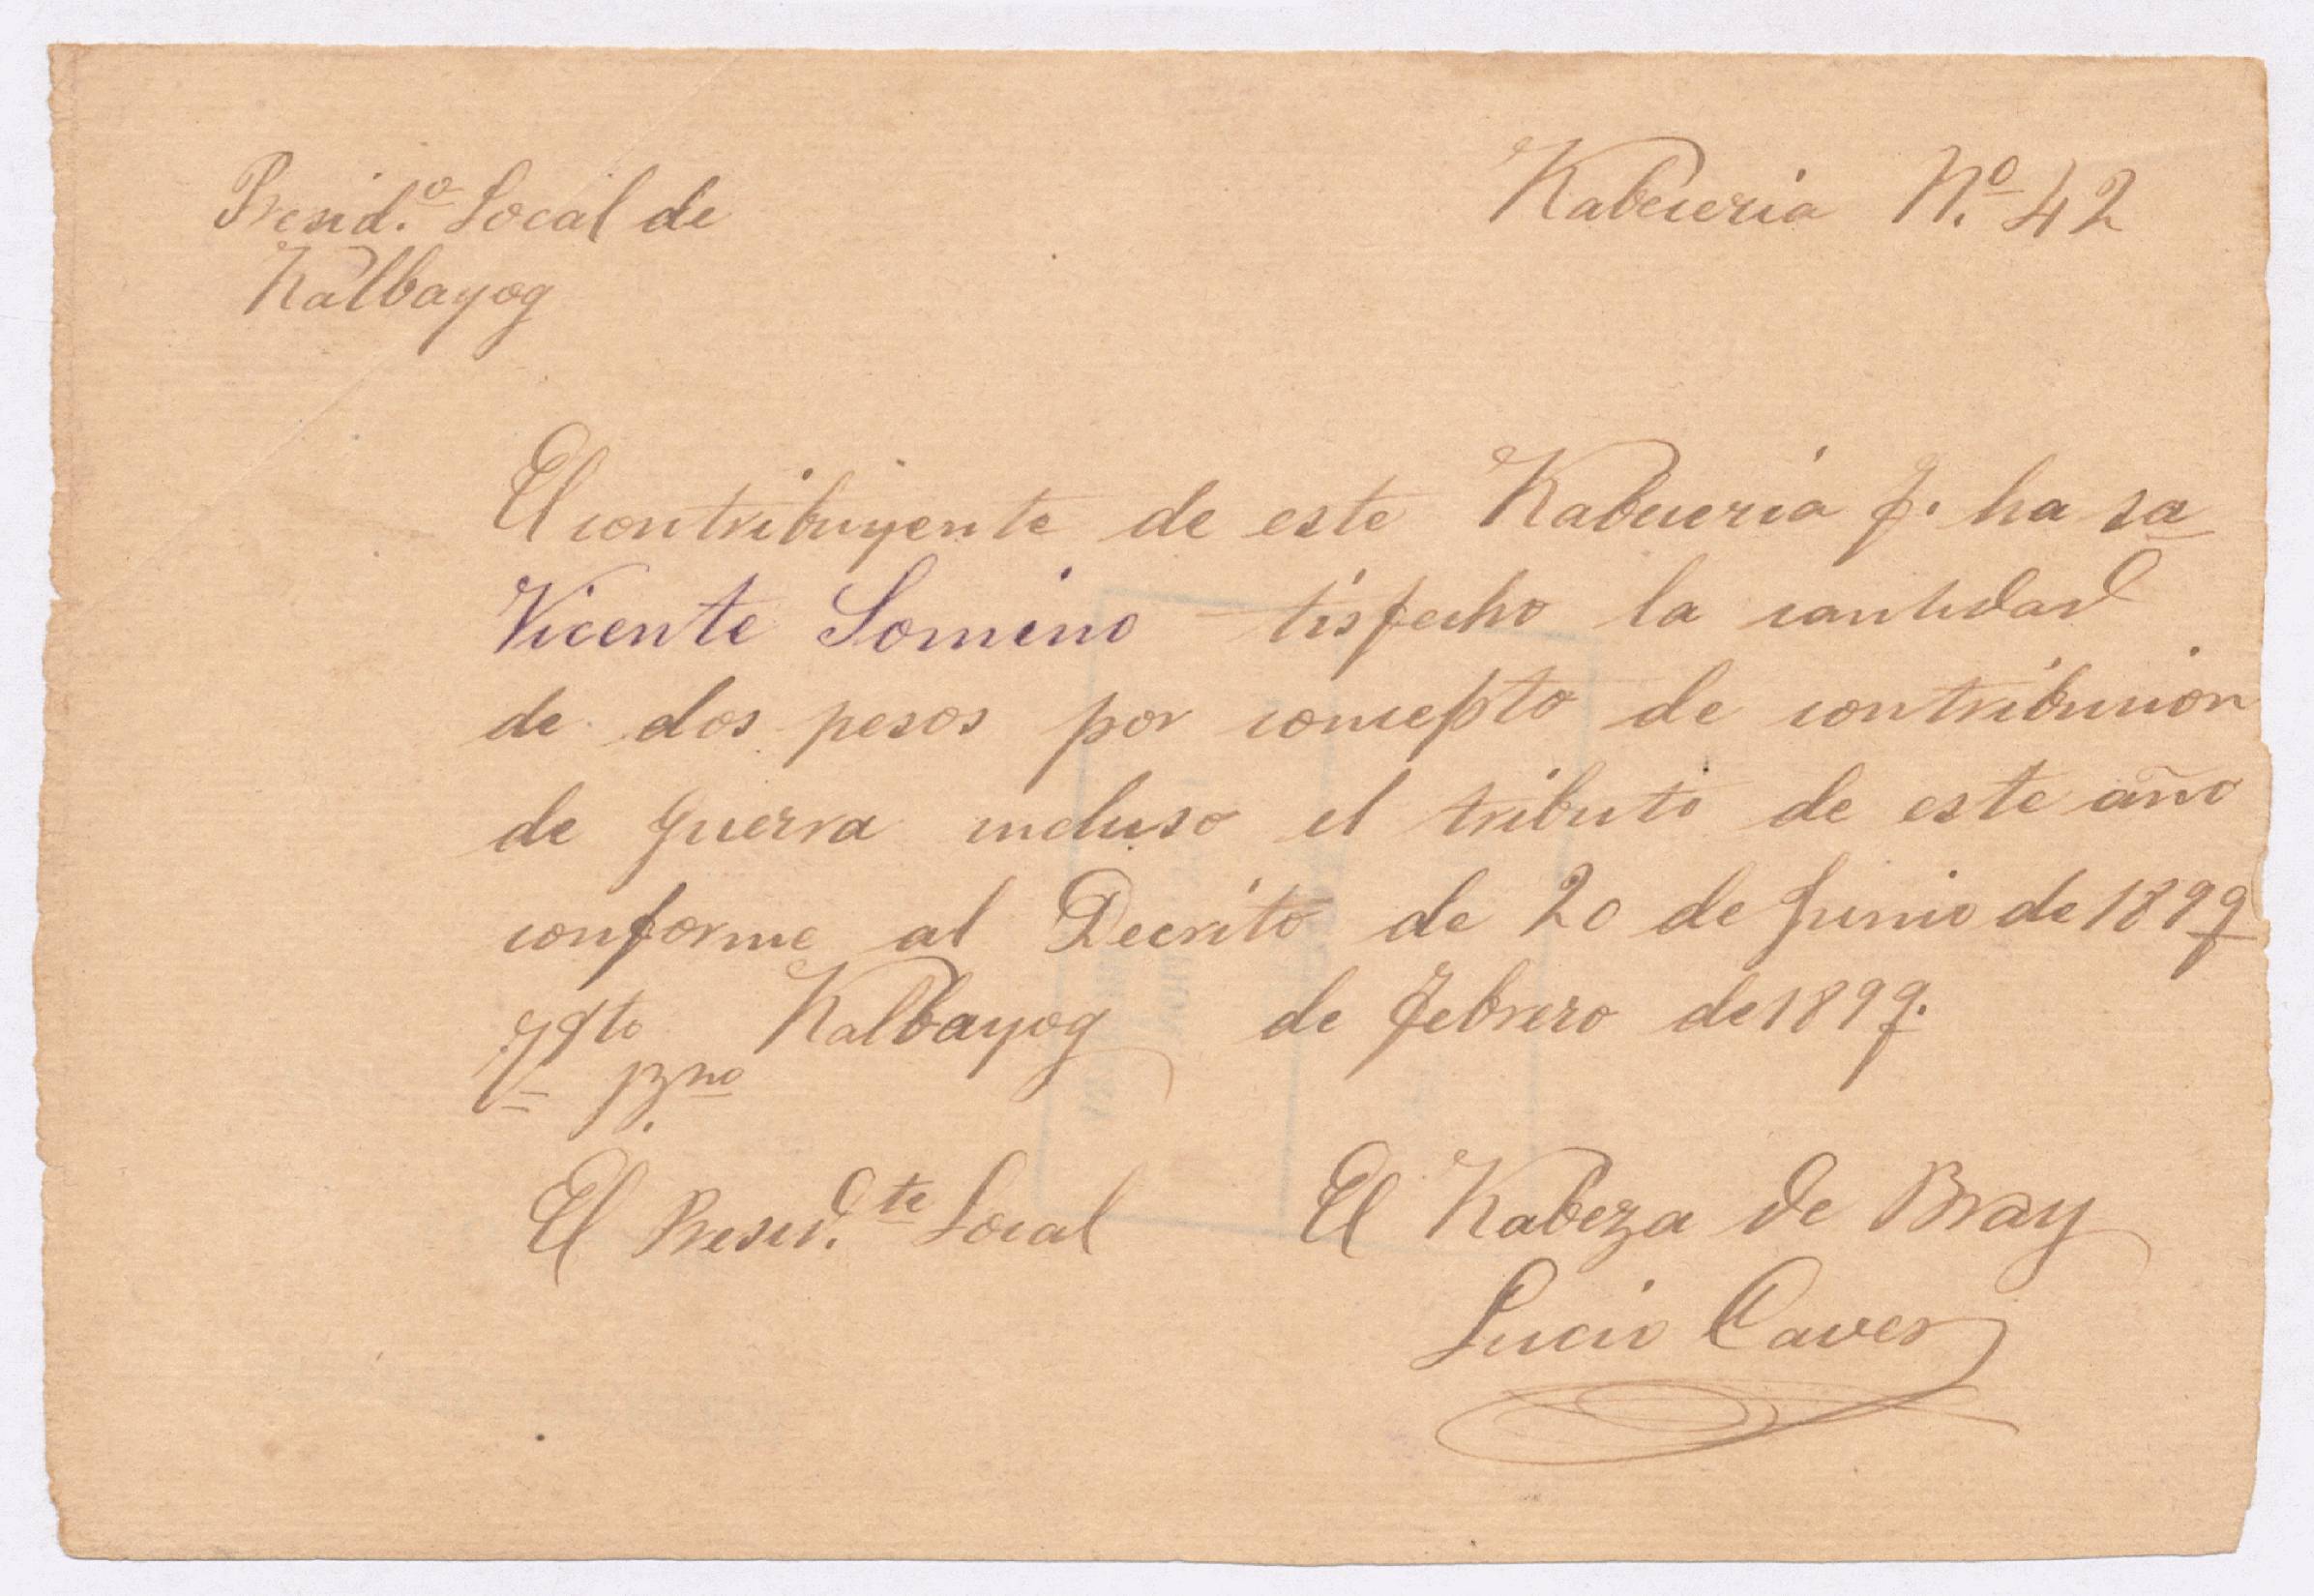 Presid.ᵃ Local de
Kalbayog
Kabeceria N.º 42
El contribuyente de este Kabeceria q. ha sa
Vicente Lomino tisfecho la cantidad
de dos pesos por concepto de contribucion
de guerra incluso el tributo de este año
conforme al Decreto de 20 de Junio de 1899
Kalbayog de Febrero de 1899.
El Presid.ᵗᵉ Local
El Kabeza de Bray
Lucio Caver